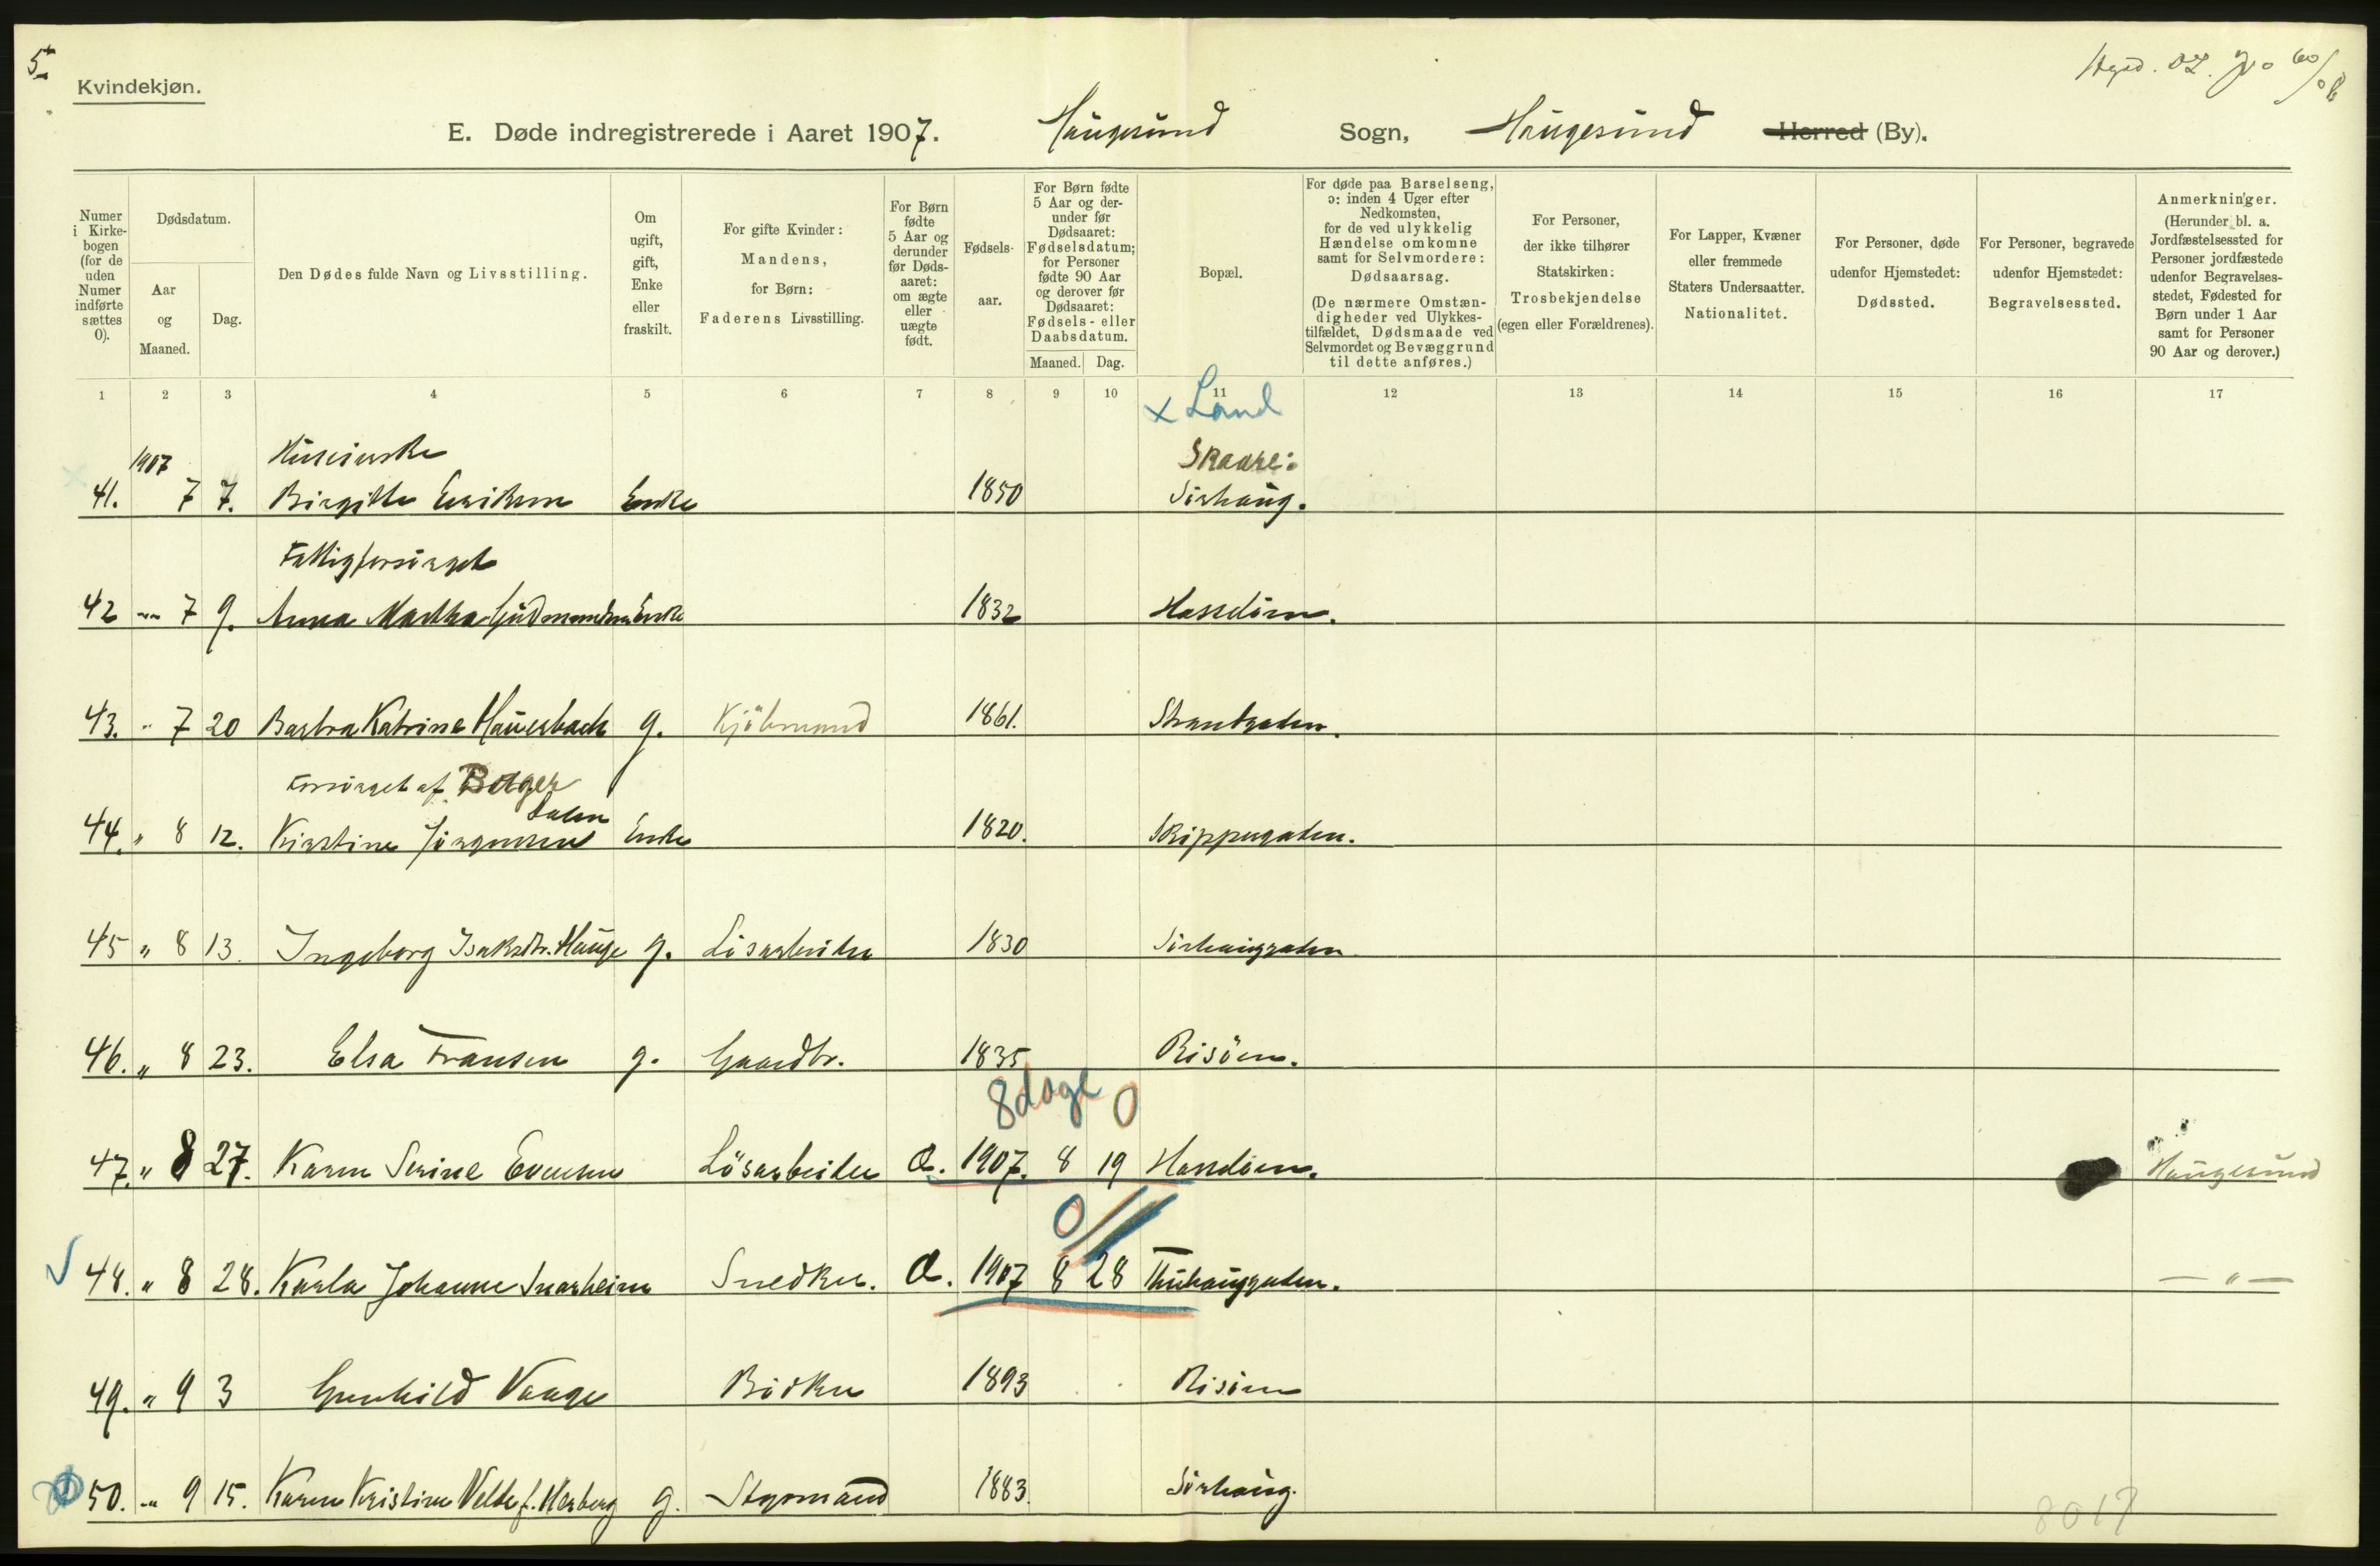 5
Kvindekjøn.
E. Døde indregistrerede i Aaret 1907. Haugesund Sogn, Haugesund Herred (By).
Numer i Kirkebogen (for de uden Numer indførte sættes 0).
Dødsdatum.
Aar og Maaned.
Dag.
Den Dødes fulde Navn og Livsstilling.
Om ugift, gift, Enke eller fraskilt.
For gifte Kvinder: Mandens, for Børn: Faderens Livsstilling.
For Børn fødte 5 Aar og derunder før Dødsaaret: om ægte eller uægte født.
Fødselsaar.
For Børn fødte 5 Aar og derunder før Dødsaaret: Fødselsdatum; for Personer fødte 90 Aar og derover før Dødsaaret: Fødsels- eller Daabsdatum.
Maaned. Dag.
Bopæl.
For døde paa Barselseng, ɔ: inden 4 Uger efter Nedkomsten, for de ved ulykkelig Hændelse omkomne samt for Selvmordere: Dødsaarsag. (De nærmere Omstændigheder ved Ulykkestilfældet, Dødsmaade ved Selvmordet og Bevæggrund til dette anføres.)
For Personer, der ikke tilhører Statskirken: Trosbekjendelse (egen eller Forældrenes).
For Lapper, Kvæner eller fremmede Staters Undersaatter. Nationalitet.
For Personer, døde udenfor Hjemstedet: Dødssted.
For Personer, begravede udenfor Hjemstedet: Begravelsessted.
Anmerkninger. (Herunder bl. a. Jordfæstelsessted for Personer jordfæstede udenfor Begravelsesstedet, Fødested for Børn under 1 Aar samt for Personer 90 Aar og derover.)
1 2 3 4 5 6 7 8 9 10 11 12 13 14 15 16 17
x Land
1907 Skaare:
41. 7 7. Birgitte Eriksen Enke 1850 Sørhaug.
Fattigforsørget
42 -"- 7 9. Anna Martha Gudmundsen Enke 1832 Hasseløen.
43. " 7 20 Barbra Katrine Hauerbach g. Kjöbmand 1861. Strandgaden.
Forsørget af Bolger
Salen
44. " 8 12. Kirstine Jörgensen Enke 1820. Skippergaden.
45 " 8 13. Ingeborg Isaksdtr. Hauge g. Løsarbeider 1830 Sørhauggaden
46. " 8 23. Elsa Fransen g. Gaardbr. 1835 Risöen.
8 dage 0
47. " 8 27. Karen Serine Evensen Lösarbeider Æ. 1907. 8 19 Hasseløen. Haugesund
0
48. " 8 28. Karla Johanne Snarheim Snedker. Æ. 1907 8 28 Thuhauggaden. — " —
49. " 9 3 Gunhild Vaage Bødker 1893 Risøen
50. -"- 9 15. Karen Kristine Velde f. Herberg g. Styrmand 1883. Sørhaug.
8017